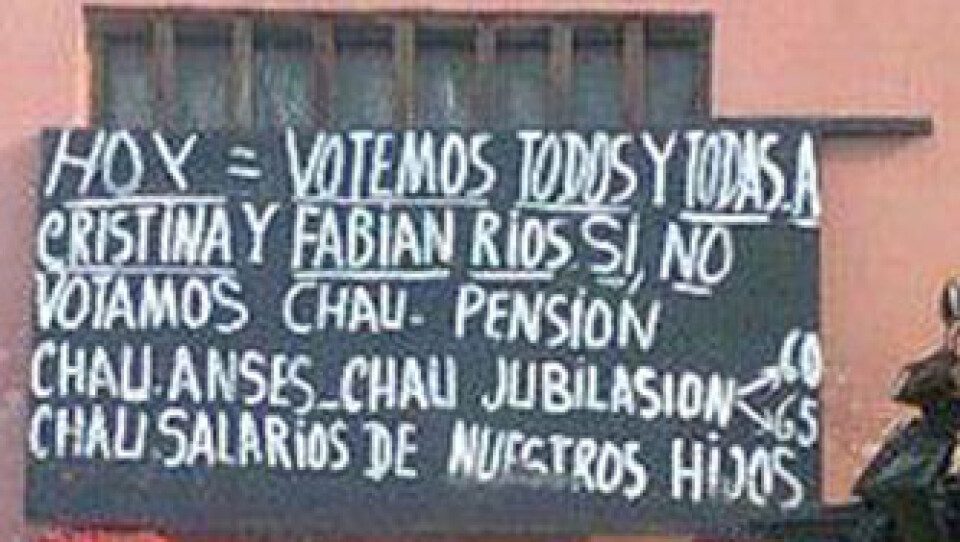 HOY = VOTEMOS TODOS Y TODAS. A
CRISTINA Y FABIÁN RÍOS. SI, NO
VOTAMOS CHAU - PENSIÓN
CHAU. ANSES - CHAU JUBILASION < 60
65
CHAU. SALARIOS DE NUESTROS HIJOS